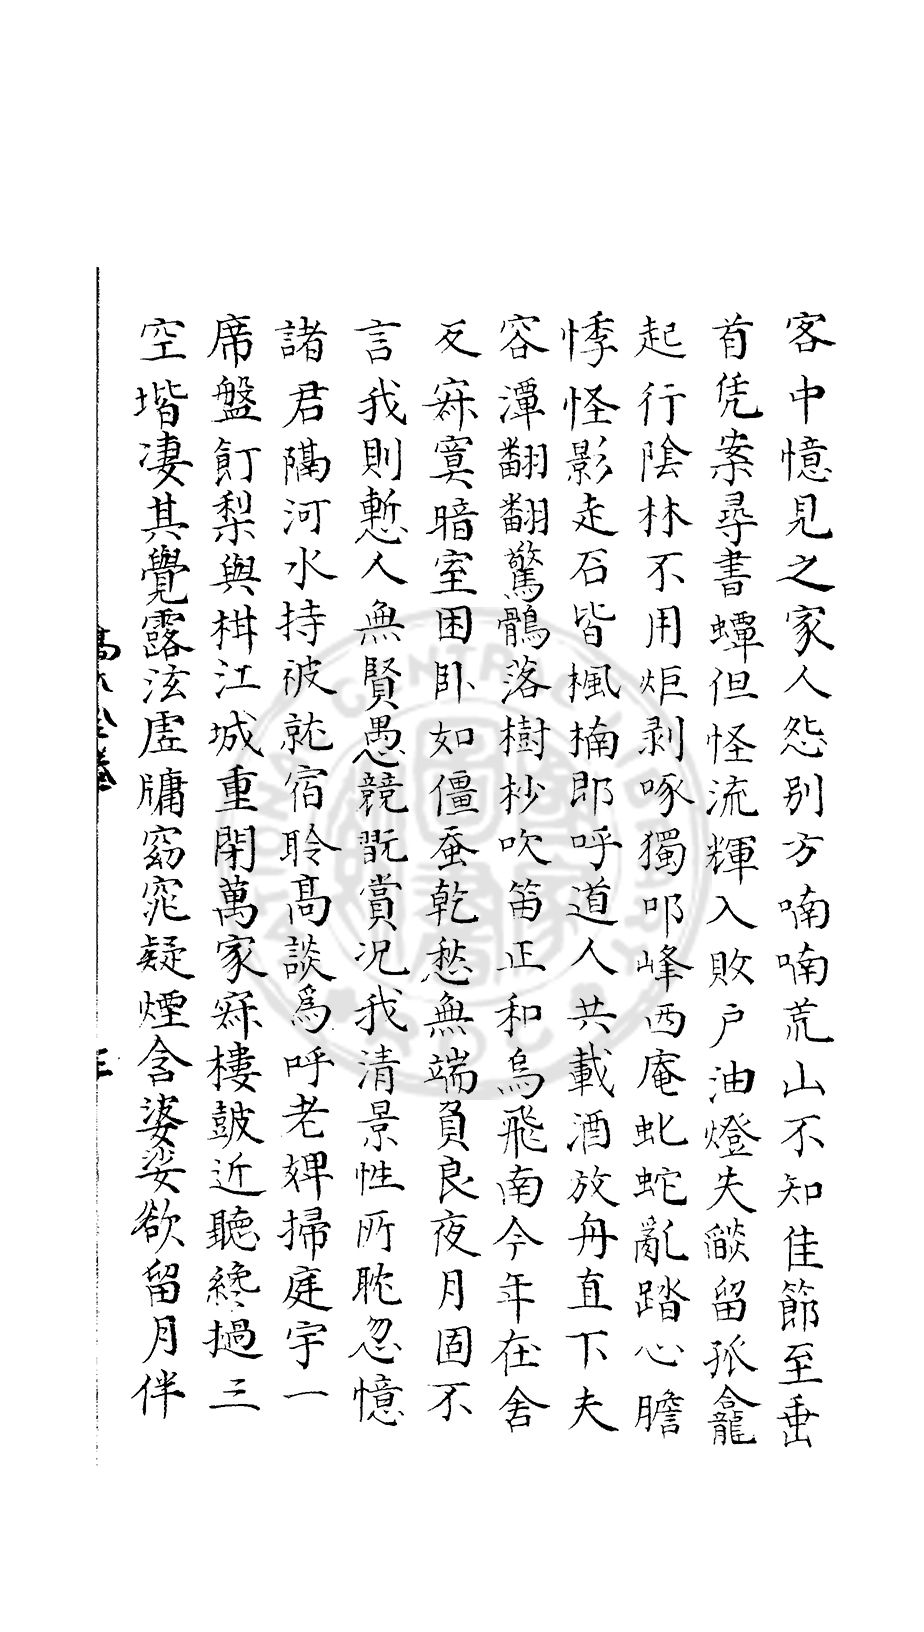 客中憶見之家人怨別方喃喃荒山不知佳節至垂
首凭案尋書蟫但怪流輝入敗戶油燈失燄留孤龕
起行陰林不用炬剥啄獨叩峰西庵虬蛇亂踏心膽
悸怪影走石皆楓楠郎呼道人共載酒放舟直下夫
容潭翻翻驚鶻落樹杪吹笛正和烏飛南今年在舍
反寂寞暗室困卧如僵蚕乾愁無端負良夜月固不
言我則慙人無賢愚競翫賞况我清景性所耽忽憶
諸君隔河水持被就宿聆高談爲呼老婢掃庭宇一
席盤飣梨與柑江城重閉萬家寂樓鼓近聽纔撾三
空堦凄其覺露泫虛牖窈窕疑煙含婆娑欲留月伴